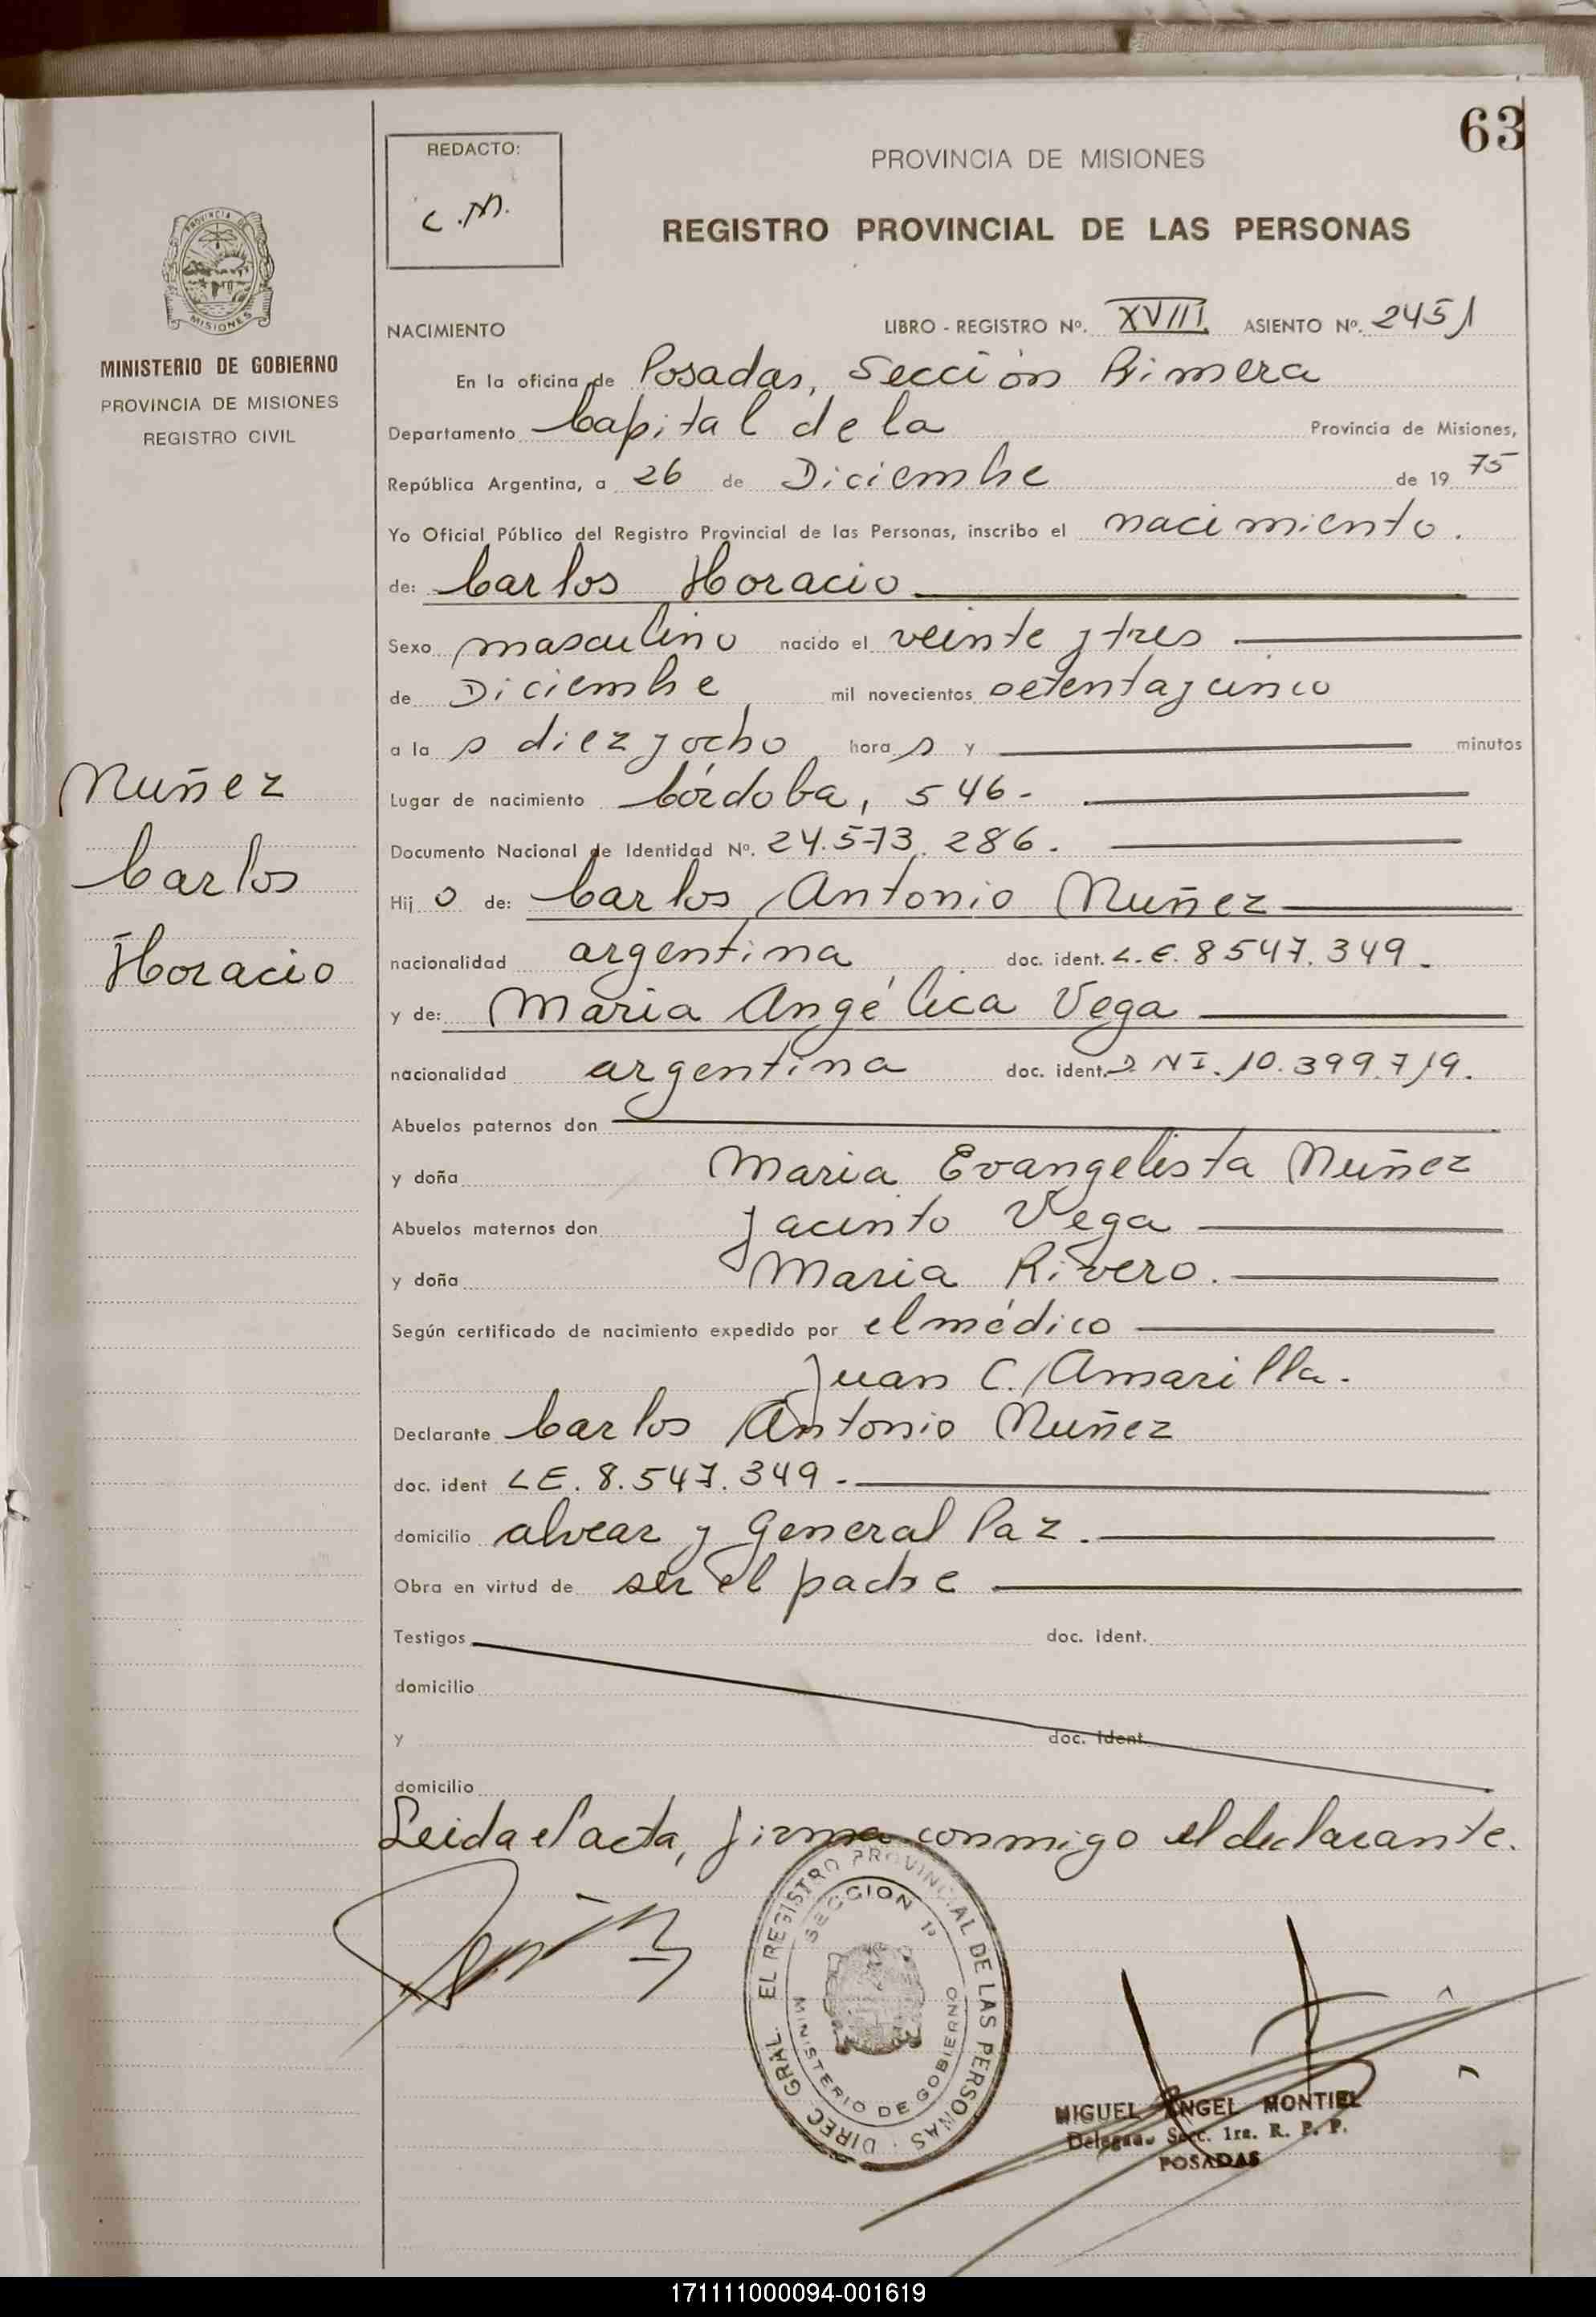 63
REDACTO:
C.M.
PROVINCIA DE MISIONES
REGISTRO PROVINCIAL DE LAS PERSONAS
MISIONES
MINISTERIO DE GOBIERNO
PROVINCIA DE MISIONES
REGISTRO CIVIL
Nuñez
Carlos
Horacio
NACIMIENTO LIBRO - REGISTRO Nº. XVIII ASIENTO Nº. 2451
En la oficina de Posadas, Sección Primera
Departamento Capital de la Provincia de Misiones,
República Argentina, a 26 de Diciembre de 19 75
Yo Oficial Público del Registro Provincial de las Personas, inscribo el nacimiento.
de: Carlos Horacio
Sexo masculino nacido el veinte y tres
de Diciembre mil novecientos setenta y cinco
a la s diez y ocho hora s y minutos
Lugar de nacimiento Córdoba, 546-
Documento Nacional de Identidad Nº. 24.573.286.
Hij o de: Carlos Antonio Nuñez
nacionalidad argentina doc. ident. L.E. 8547.349.
y de: Maria Angélica Vega
nacionalidad argentina doc. ident. D.N.I. 10.399.719.
Abuelos paternos don
y doña Maria Evangelista Nuñez
Abuelos maternos don Jacinto Vega
y doña Maria Rivero.
Según certificado de nacimiento expedido por el médico
Juan C. Amarilla.
Declarante Carlos Antonio Nuñez
doc. ident LE. 8.547.349-
domicilio alvear y General Paz.
Obra en virtud de ser el padre
Testigos doc. ident.
domicilio
y doc. ident.
domicilio
Leida el acta, firma conmigo el declarante.
DIREC GRAL. EL REGISTRO PROVINCIAL DE LAS PERSONAS
SECCION 1ª
MINISTERIO DE GOBIERNO
MIGUEL ANGEL MONTIEL
Delegado Secc. 1ra. R. P. P.
POSADAS
171111000094-001619